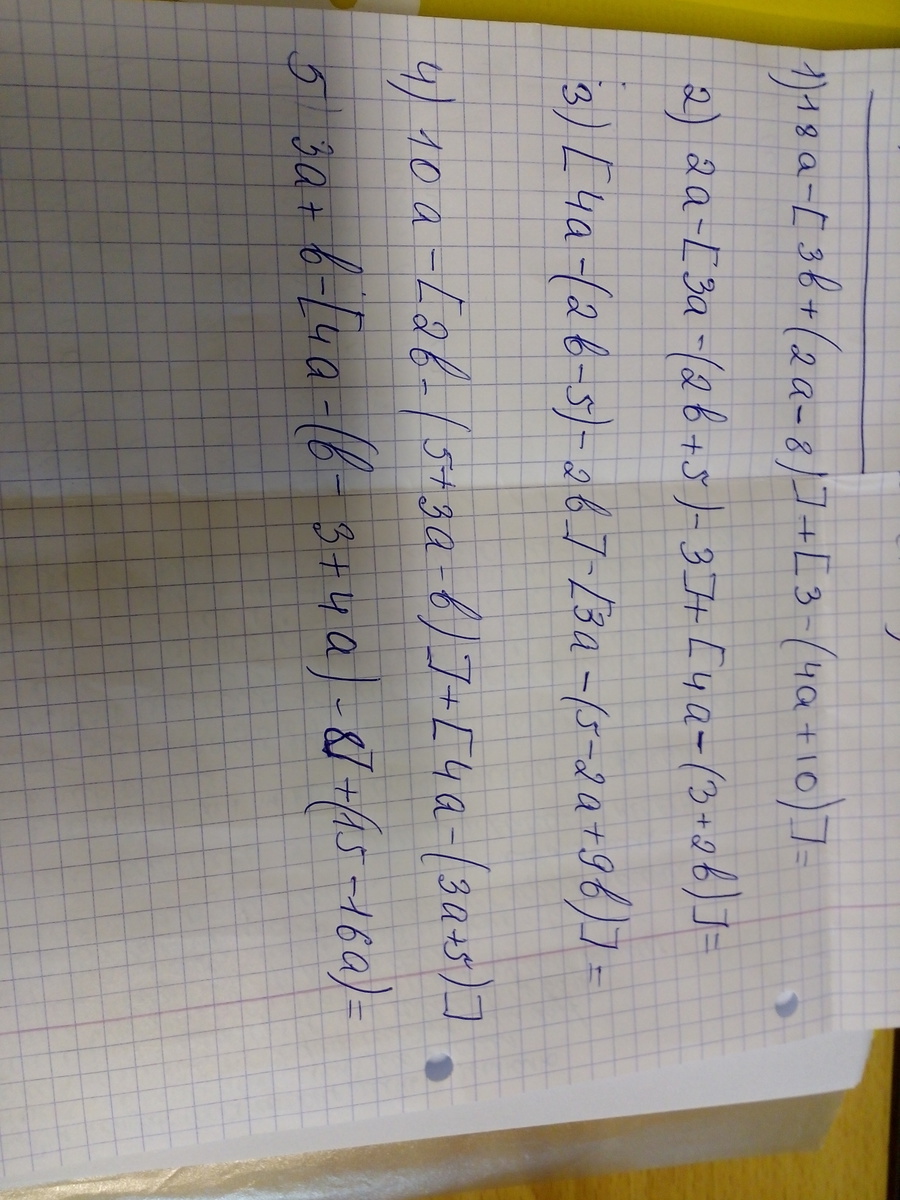 1) 18a-[3b+(2a-8)]+[3-(4a+10)]=
2) 2a-[3a-(2b+5)-3]+[4a-(3+2b)]=
3) [4a-(2b-5)-2b]-[3a-(5-2a+9b)]=
4) 10a-[2b-(5+3a-b)]+[4a-(3a+5)]
5) 3a+b-[4a-(b-3+4a)-8]+(15-16a)=